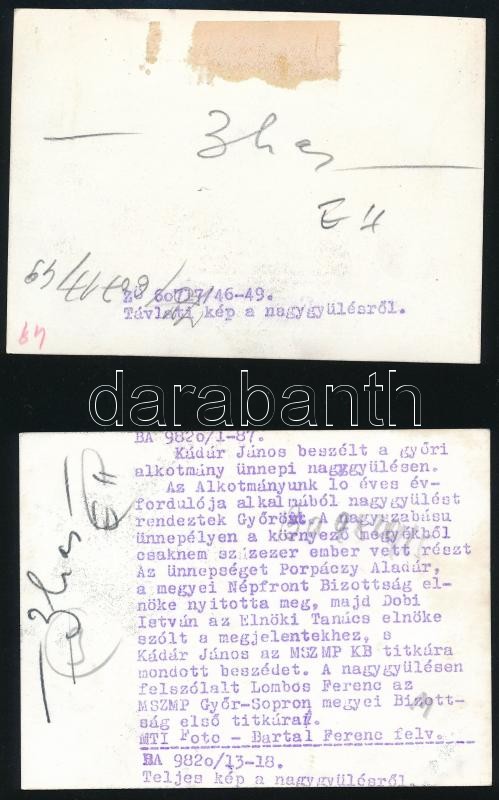 3 has
EH
ZÜ 60717/46-49.
Távlati kép a nagygyülésről.
64
darabanth
BA 982o/1-87.
Kádár János beszélt a győri
alkotmány ünnepi nagygyülésen.
Az Alkotmányunk 1o éves év-
fordulója alkalmából nagygyülést
rendeztek Győrött. A nagyszabásu
ünnepélyen a környező megyékből
csaknem százezer ember vett részt
Az ünnepséget Porpáczy Aladár,
a megyei Népfront Bizottság el-
nöke nyitotta meg, majd Dobi
István az Elnöki Tanács elnöke
szólt a megjelentekhez, s
Kádár János az MSZMP KB titkára
mondott beszédet. A nagygyülésen
felszólalt Lombos Ferenc az
MSZMP Győr-Sopron megyei Bizott-
ság első titkára.
MTI Foto - Bartal Ferenc felv.
BA 982o/13-18.
Teljes kép a nagygyülésről.
3 has
EH